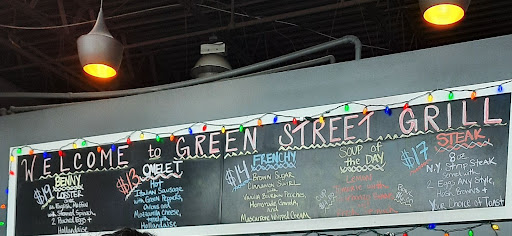 WELCOME to GREEN STREET GRILL
$19
BENNY
LOBSTER
on English Muffin
with Steamed Spinach,
2 Poached Eggs &
Hollandaise
$13
OMELET
Hot
Italian Sausage
with Green Peppers,
Onions and
Mozzarella Cheese,
topped with
Hollandaise
$14
FRENCHY
Brown Sugar
Cinnamon Swirl
with
Vanilla Bourbon Peaches,
Homemade Granola,
and
Mascarpone Whipped Cream
SOUP OF
THE
DAY
$17
STEAK
8oz
N.Y. Strip Steak
served with
Eggs Any Style,
Home Fries &
Your Choice of Toast